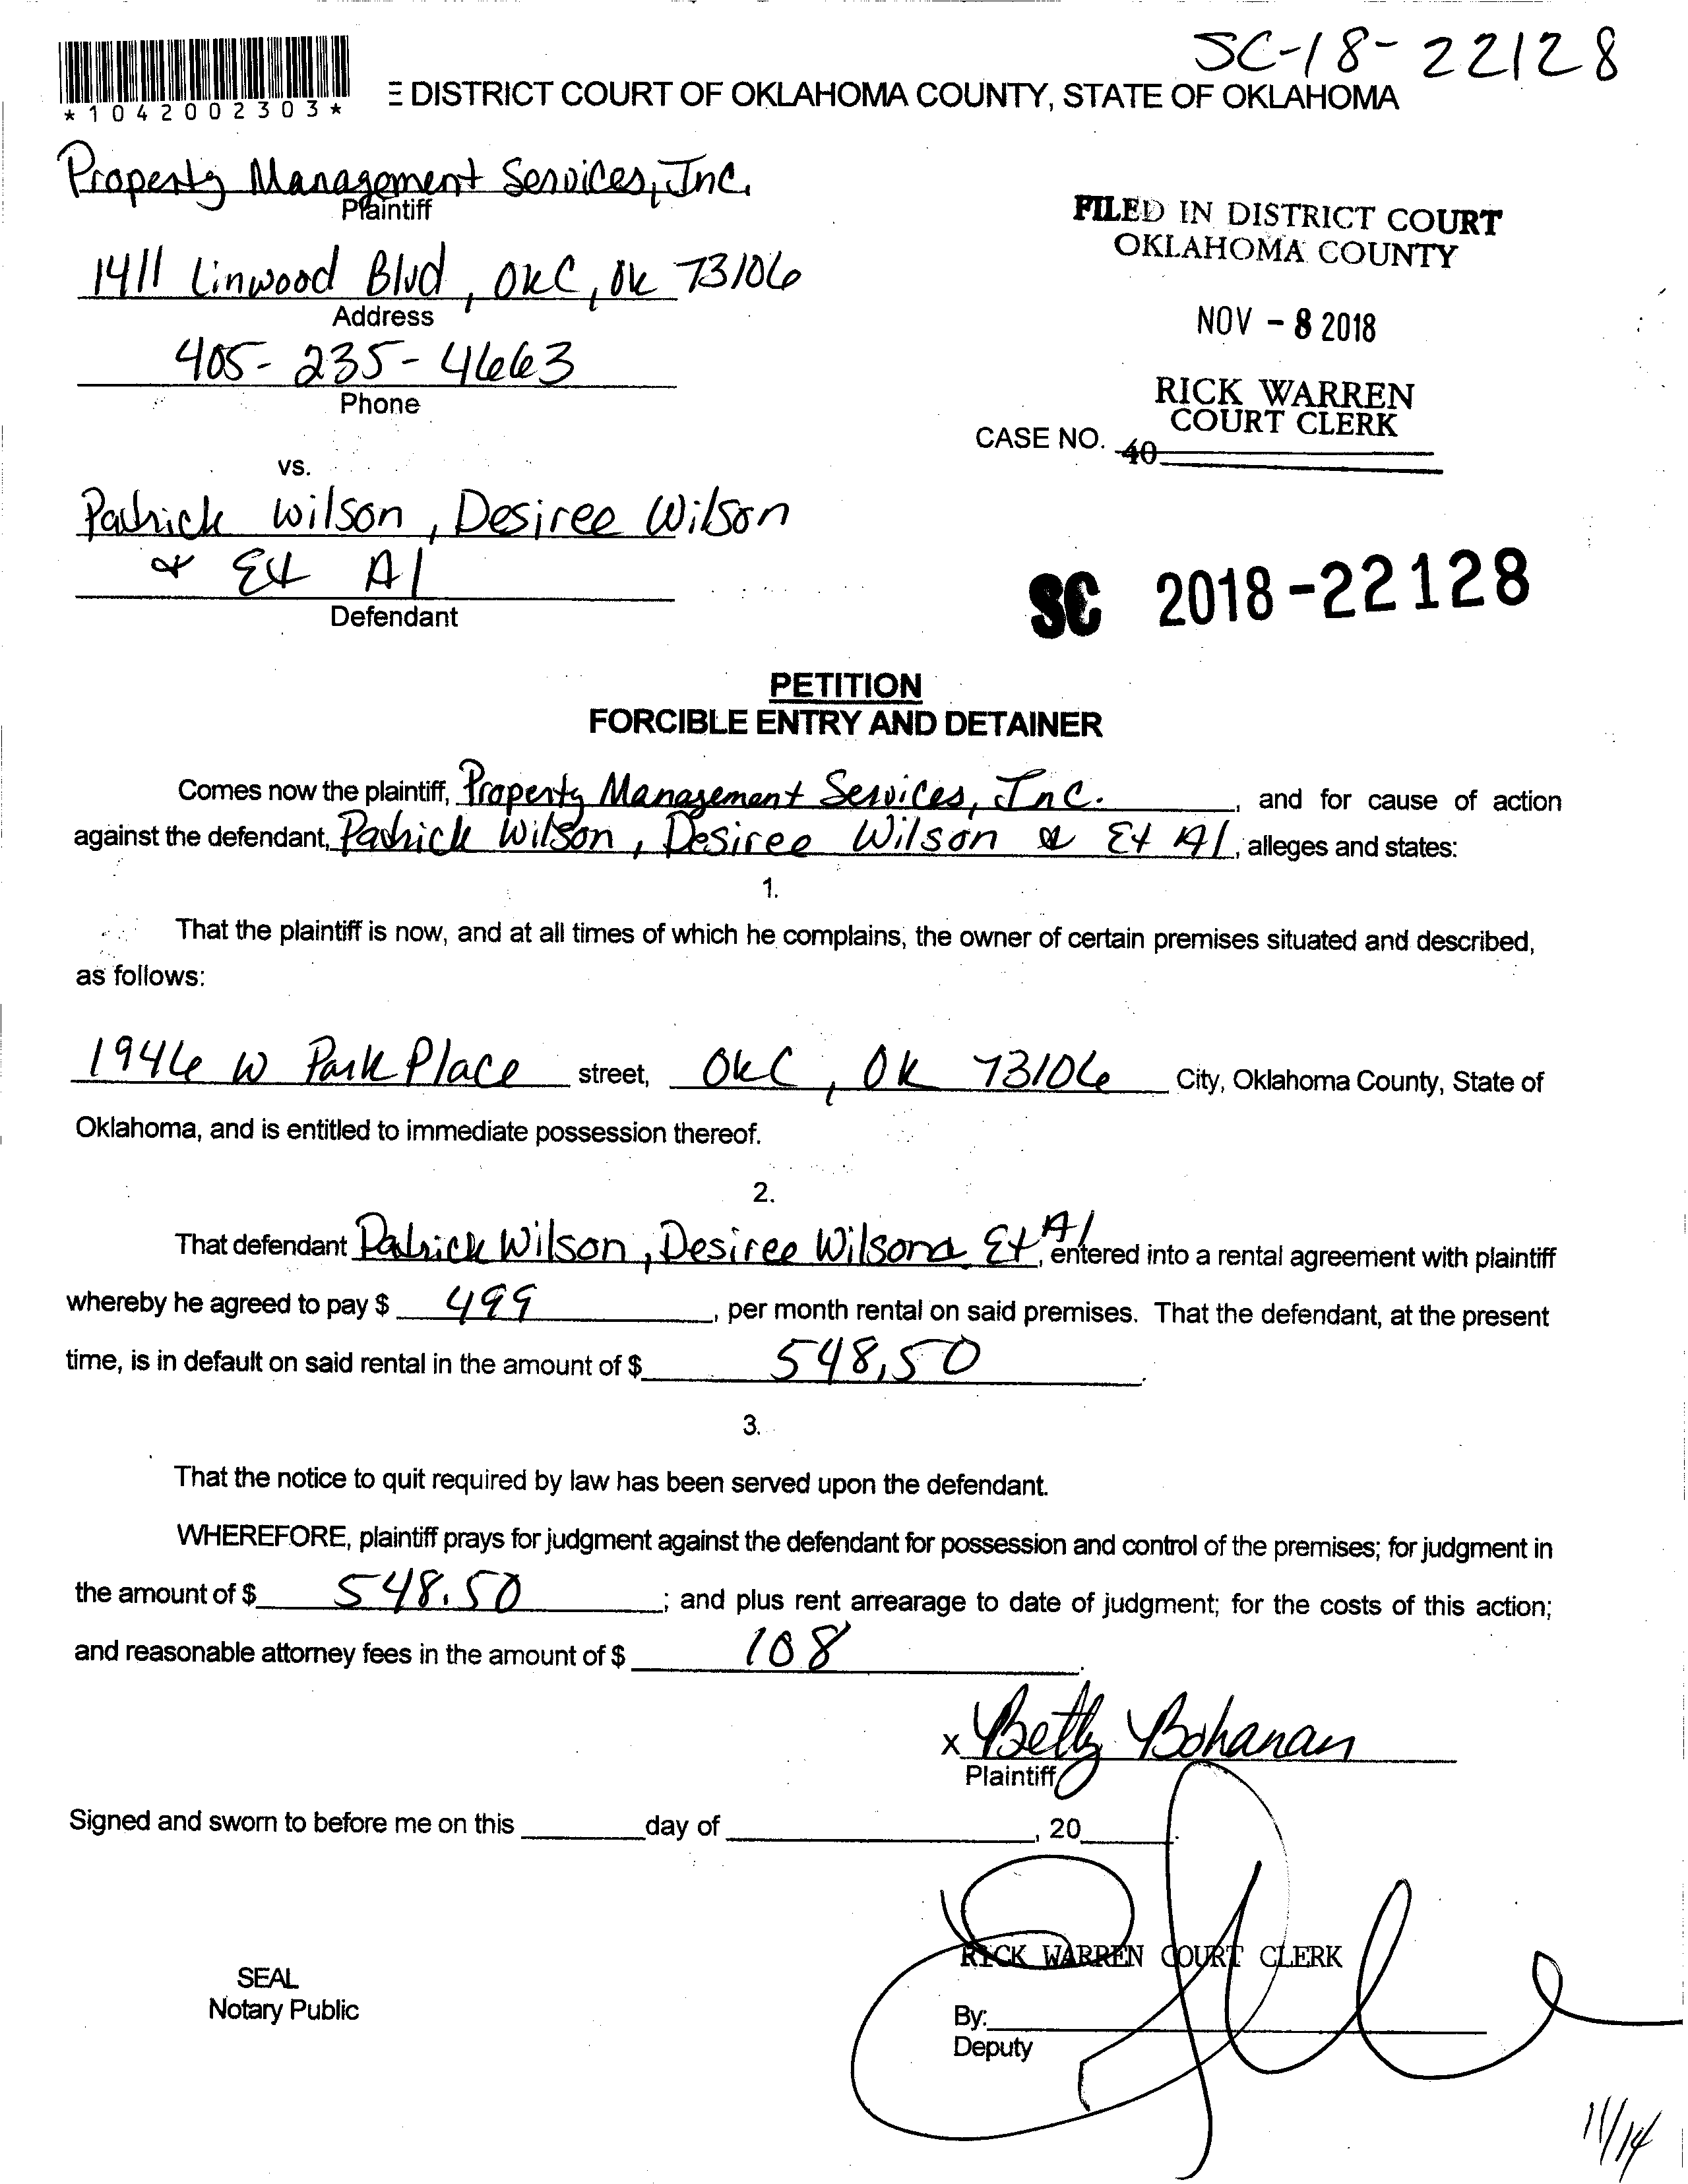 SC-18-22128
*1042002303*
E DISTRICT COURT OF OKLAHOMA COUNTY, STATE OF OKLAHOMA
Property Management Services, Inc.
Plaintiff
FILED IN DISTRICT COURT
OKLAHOMA COUNTY
1411 Linwood Blvd, OKC, OK 73106
Address
NOV - 8 2018
405-235-4663
Phone
RICK WARREN
COURT CLERK
CASE NO.
40
vs.
Patrick Wilson, Desiree Wilson
& Et Al
Defendant
SC 2018-22128
PETITION
FORCIBLE ENTRY AND DETAINER
Comes now the plaintiff, Property Management Services, Inc., and for cause of action
against the defendant, Patrick Wilson, Desiree Wilson & Et Al, alleges and states:
1.
That the plaintiff is now, and at all times of which he complains, the owner of certain premises situated and described,
as follows:
1946 W Park Place street, OKC, OK 73106 City, Oklahoma County, State of
Oklahoma, and is entitled to immediate possession thereof.
2.
That defendant Patrick Wilson, Desiree Wilson & Et Al, entered into a rental agreement with plaintiff
whereby he agreed to pay $ 499, per month rental on said premises. That the defendant, at the present
time, is in default on said rental in the amount of $ 548.50.
3.
That the notice to quit required by law has been served upon the defendant.
WHEREFORE, plaintiff prays for judgment against the defendant for possession and control of the premises; for judgment in
the amount of $ 548.50; and plus rent arrearage to date of judgment; for the costs of this action;
and reasonable attorney fees in the amount of $ 108.
x Betty Bohanan
Plaintiff
Signed and sworn to before me on this ____ day of ____, 20____.
RICK WARREN COURT CLERK
SEAL
Notary Public
By:
Deputy
11/14